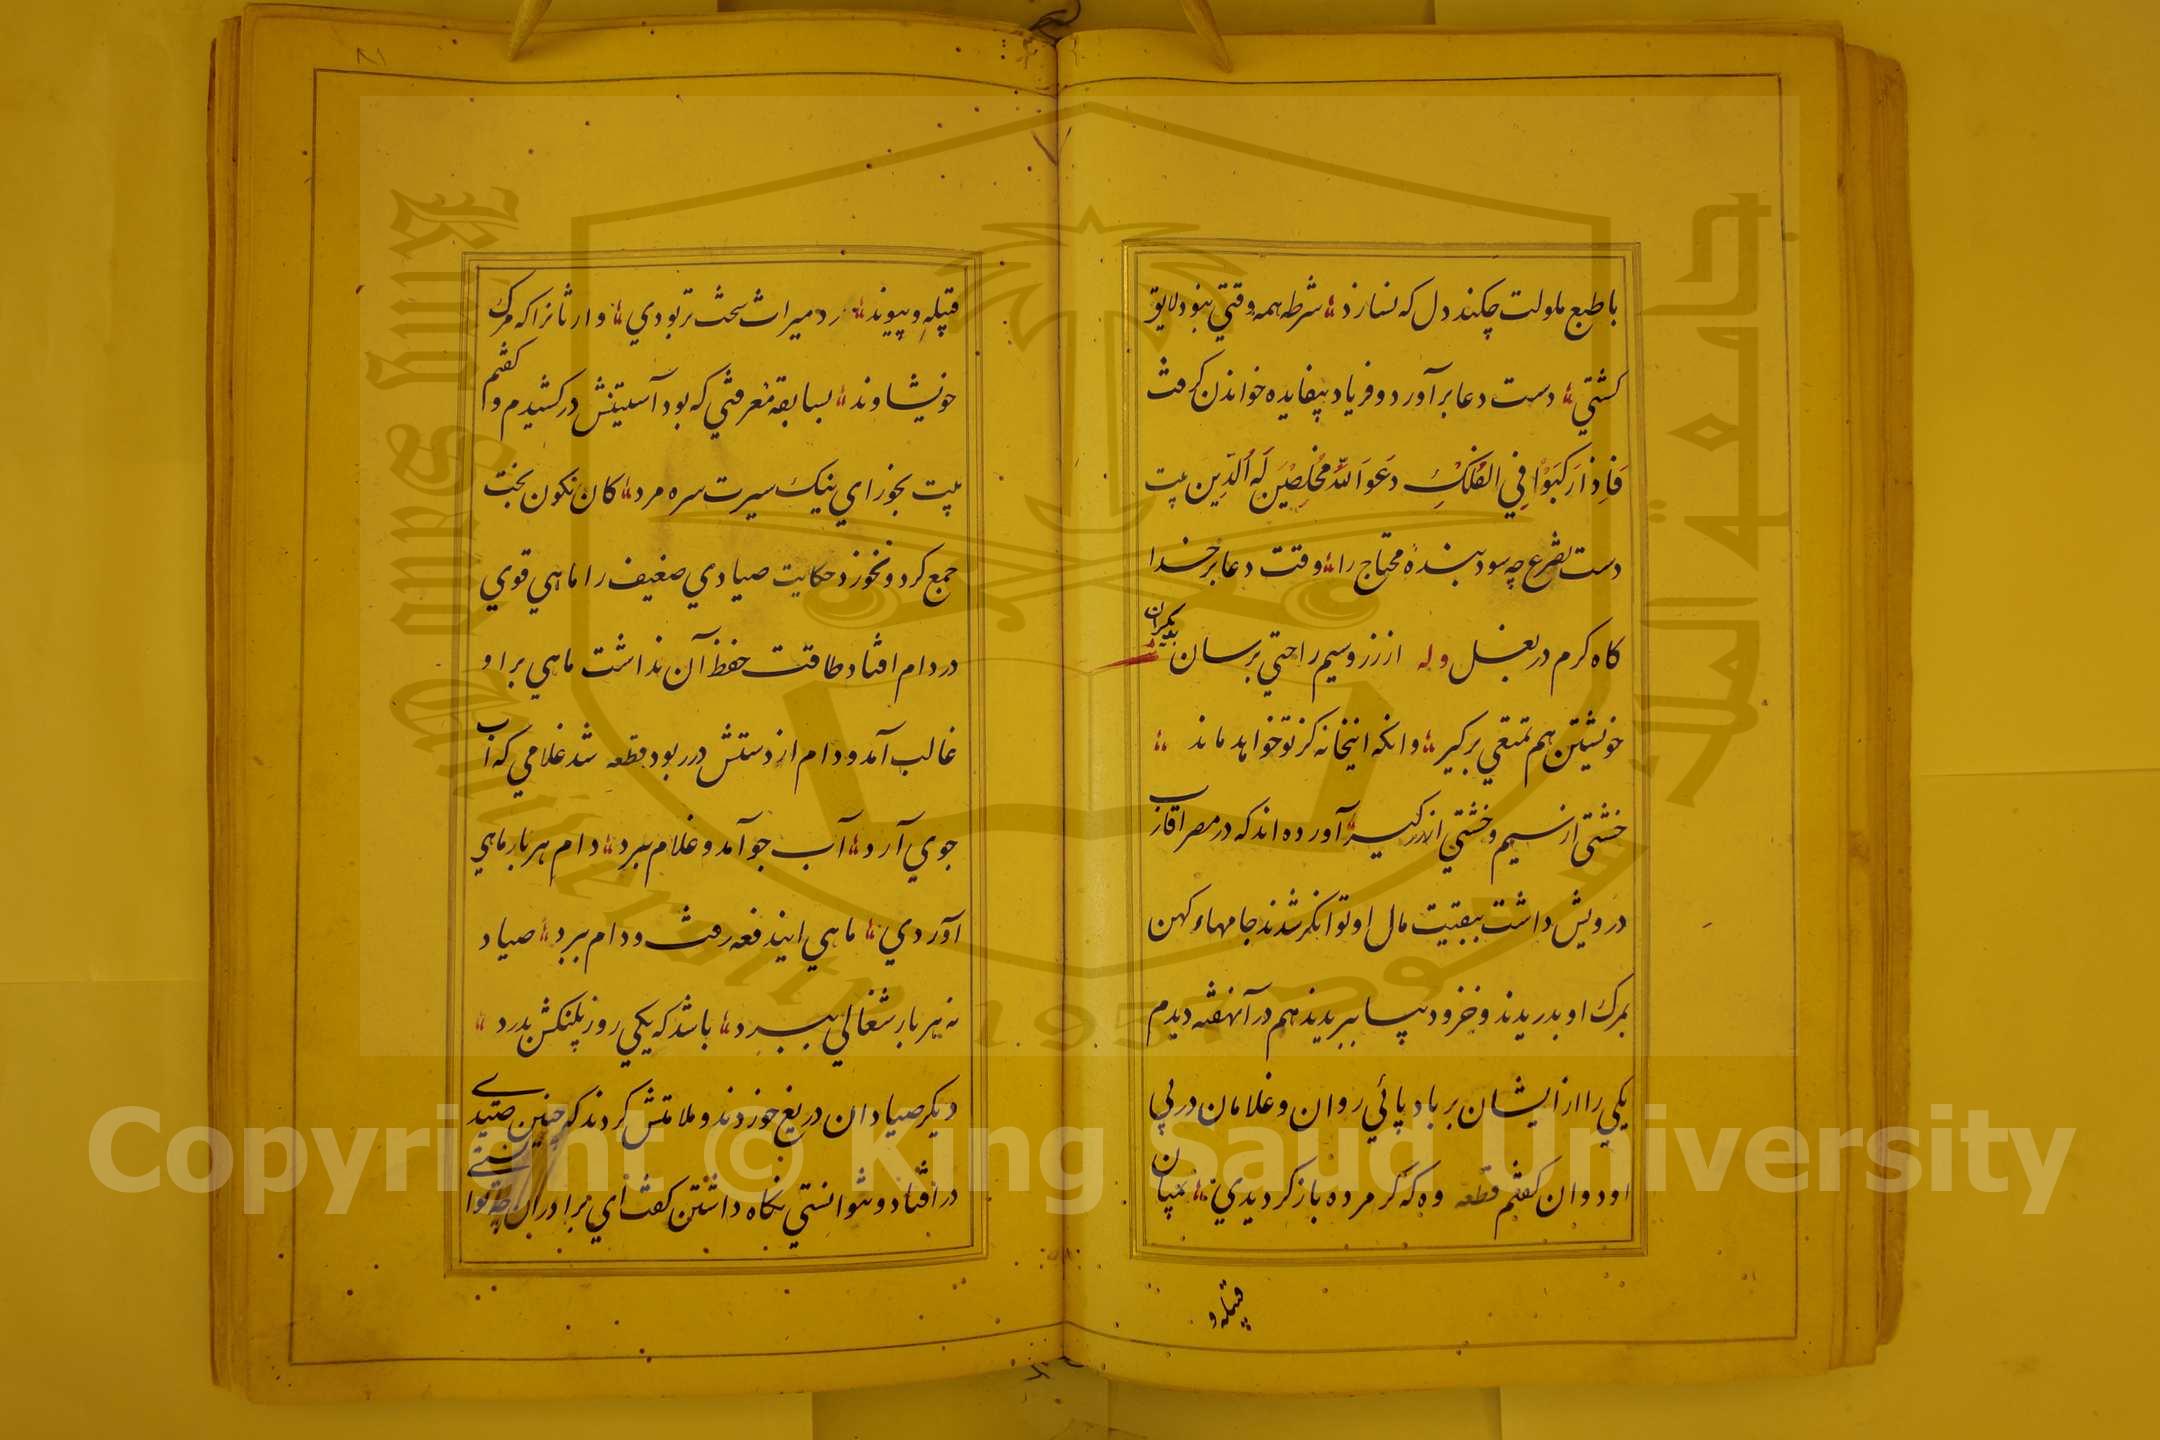 با طبع ملولت چکند دل که نسازد شرطه همه وقتی نبود لایق
کشتی دست دعا برآورد و فریاد بیفایده خواندن گرفت
فَاِذا رَکِبَوْا فِي الفُلكِ دعَوَا اللّٰهَ مُخلِصِیْنَ لَهُ الدّین بیت
دست تضرع چه سود بندهٔ محتاج را وقت دعا بر خدا
کاه کرم در بغل وله از زر و سیم راحتی برسان
خویشتن هم تمتعی برگیر وانکه اینخانه کز تو خواهد ماند
خشتی از سیم و خشتی از زر گیر آورده اند که در مصر اقارب
درویش داشت ببقیت مال او توانگر شدند جامهاء کهن
بمرک او بدریدند و خز و دیبا ببریدند هم در آنهفته دیدم
یکی را از ایشان بر باد پائی روان و غلامان در پی
او دوان گفتم قطعه وه که گر مرده باز گردیدی بمیان
قبیله و
قبیله و پیوند رد میراث سخت تر بودی وارثانرا که مرگ
خویشاوند بسابقه معرفتی که بود آستینش درکشیدم و گفتم
بیت بخور ای نیک سیرت سره مرد کان نگون بخت
جمع کرد و نخورد حکایت صیادی ضعیف را ماهی قوی
در دام افتاد طاقت حفظ آن نداشت ماهی بر او
غالب آمد و دام از دستش در ربود قطعه شد غلامی که آب
جوی آرد آب جو آمد و غلام ببرد دام هر بار ماهی
آوردی ماهی ایندفعه رفت و دام ببرد صیاد
نه هر بار شغالی ببرد باشد که یکی روز پلنگش بدرد
دیگر صیادان دریغ خوردند و ملامتش کردند که چنین صیدی
در افتاد و نتوانستی نگاه داشتن گفت ای برادران چه توانستی
King Saud University
جامعة الملك سعود
1957
Copyright © King Saud University